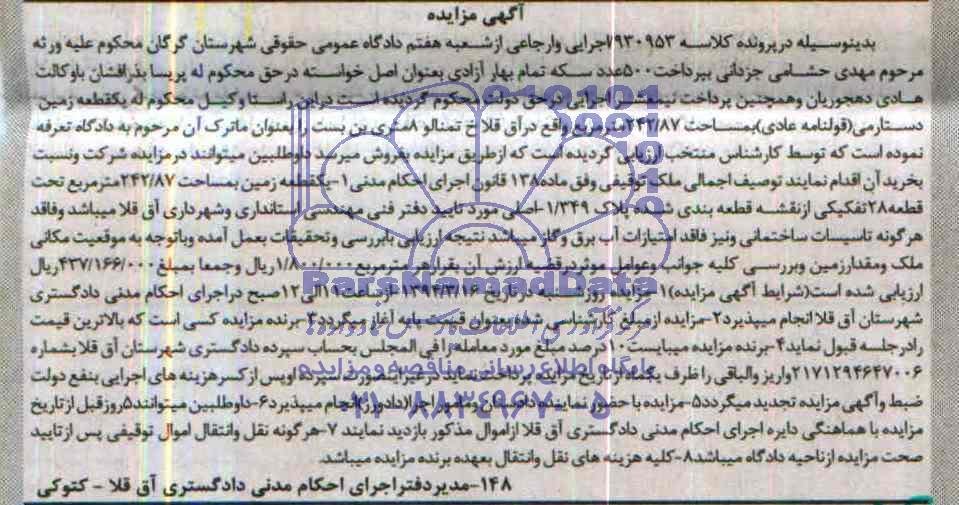 آگهی مزایده
بدینوسیله درپرونده کلاسه ۹۳۰۹۵۳/اجرایی وارجاعی ازشعبه هفتم دادگاه عمومی حقوقی شهرستان گرگان محکوم علیه ورثه
مرحوم مهدی حشامی جزدانی بپرداخت۵۰۰عدد سکه تمام بهار آزادی بعنوان اصل خواسته درحق محکوم له پریسا بذرافشان باوکالت
هادی دهجوریان وهمچنین پرداخت نیمعشر اجرایی درحق دولت محکوم گردیده است دراین راستا وکیل محکوم له یکقطعه زمین
دستارمی(قولنامه عادی)بمساحت ۲۴۲/۸۷مترمربع واقع درآق قلا خ تمنالو ۸متری بن بست را بعنوان ماترک آن مرحوم به دادگاه تعرفه
نموده است که توسط کارشناس منتخب ارزیابی گردیده است که ازطریق مزایده بفروش میرسد داوطلبین میتوانند درمزایده شرکت ونسبت
بخرید آن اقدام نمایند توصیف اجمالی ملک توقیفی وفق ماده۱۳۸ قانون اجرای احکام مدنی۱-یکقطعه زمین بمساحت ۲۴۲/۸۷مترمربع تحت
قطعه۲۸تفکیکی ازنقشه قطعه بندی شده پلاک ۱/۳۴۹-اصلی مورد تایید دفتر فنی مهندسی استانداری وشهرداری آق قلا میباشد وفاقد
هرگونه تاسیسات ساختمانی ونیز فاقد امتیازات آب برق وگاز میباشد نتیجه ارزیابی بابررسی وتحقیقات بعمل آمده وباتوجه به موقعیت مکانی
ملک ومقدارزمین وبررسی کلیه جوانب وعوامل موثردرقضیه ارزش آن بقرارهرمترمربع۱/۸۰۰/۰۰۰ریال وجمعا بمبلغ۴۳۷/۱۶۶/۰۰۰ریال
ارزیابی شده است(شرایط آگهی مزایده)۱-مزایده روزشنبه درتاریخ ۱۳۹۴/۳/۱۶-ازساعت۱۱الی۱۲صبح دراجرای احکام مدنی دادگستری
شهرستان آق قلاانجام میپذیرد۲-مزایده ازمبلغ کارشناسی شده بعنوان قیمت پایه آغاز میگردد۳-برنده مزایده کسی است که بالاترین قیمت
رادرجلسه قبول نماید۴-برنده مزایده میبایست۱۰درصد مبلغ مورد معامله را فی المجلس بحساب سپرده دادگستری شهرستان آق قلا بشماره
۲۱۷۱۲۹۴۶۴۷۰۰۶واریز والباقی را ظرف یکماه ازتاریخ مزایده پرداخت نماید درغیراینصورت سپرده اوپس ازکسرهزینه های اجرایی بنفع دولت
ضبط وآگهی مزایده تجدید میگردد۵-مزایده با حضور نماینده دادستان ومامور اجرا(دادورز)انجام میپذیرد۶-داوطلبین میتوانند۵روزقبل ازتاریخ
مزایده با هماهنگی دایره اجرای احکام مدنی دادگستری آق قلا ازاموال مذکور بازدید نمایند ۷-هرگونه نقل وانتقال اموال توقیفی پس ازتایید
صحت مزایده ازناحیه دادگاه میباشد۸-کلیه هزینه های نقل وانتقال بعهده برنده مزایده میباشد.
۱۴۸-مدیردفتراجرای احکام مدنی دادگستری آق قلا - کتوکی
ParsNamadData
پایگاه اطلاع رسانی مناقصه و مزایده
۰۲۱-۸۸۳۴۹۶۷۰-۵